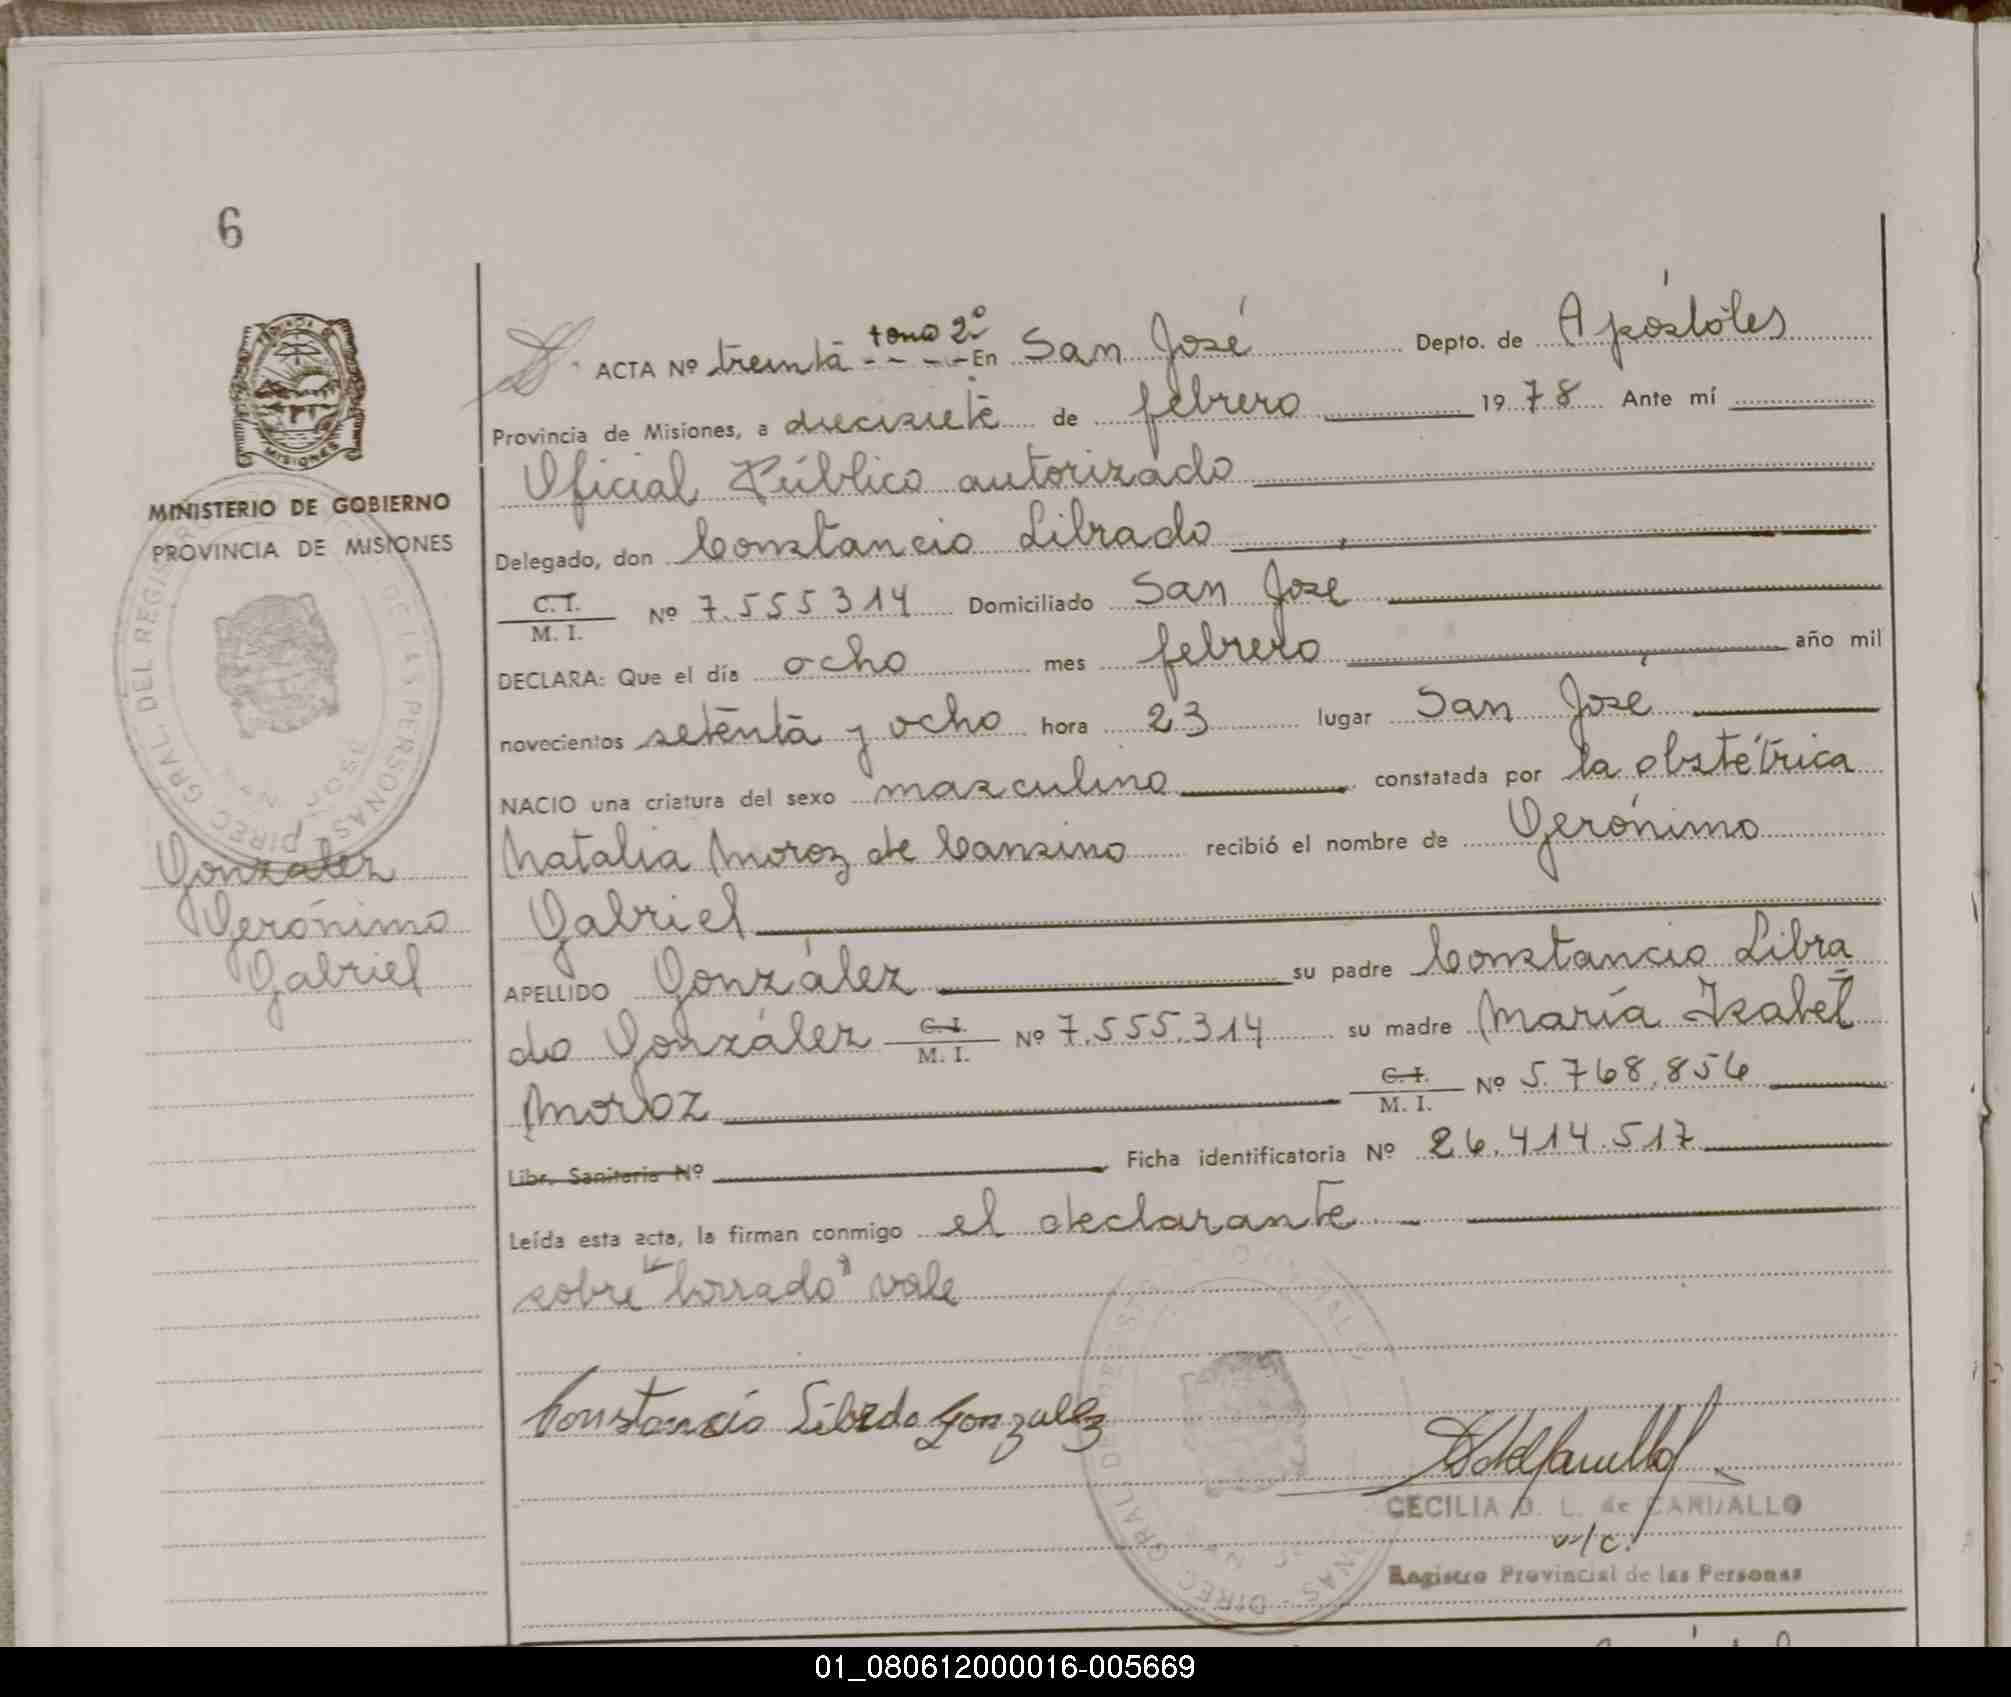 6
MISIONES
MINISTERIO DE GOBIERNO
PROVINCIA DE MISIONES
DIREC GRAL DEL REGIS DE LAS PERSONAS
González
Gerónimo
Gabriel
ACTA Nº treinta tomo 2º - - - - En San José Depto. de Apóstoles
Provincia de Misiones, a diecisiete de febrero 1978 Ante mí
Oficial Público autorizado
Delegado, don Constancio Librado
C.I. / M. I. Nº 7.555314 Domiciliado San José
DECLARA: Que el día ocho mes febrero año mil
novecientos setenta y ocho hora 23 lugar San José
NACIO una criatura del sexo masculino constatada por la obstétrica
Natalia Moroz de Cansino recibió el nombre de Gerónimo
Gabriel
APELLIDO González su padre Constancio Libra
do González C.I. / M. I. Nº 7.555.314 su madre María Isabel
Moroz C.I. / M. I. Nº 5.768.856
Libr. Sanitaria Nº Ficha identificatoria Nº 26.414.517
Leída esta acta, la firman conmigo el declarante
sobre "borrado" vale
Constancio Librado Gonzalez
CECILIA B. L. de CARVALLO
a/c.
Registro Provincial de las Personas
01_080612000016-005669